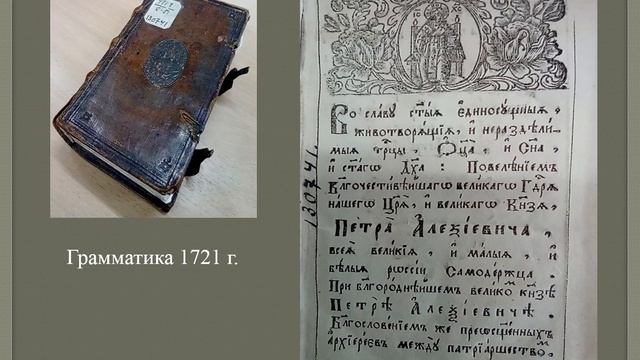 130741
Грамматика 1721 г.
130741.
Во сла́вꙋ ст҃ы́ѧ є҆диносꙋ́щныѧ,
животворѧ́щїѧ, и҆ нераздѣли-
мыѧ трⷪ҇цы, Ѻ҆ц҃а̀, и҆ Сн҃а,
и҆ ст҃а́гѡ Дх҃а : Повелѣ́нїемъ
Блгⷪ҇чести́вѣйшагѡ вели́кагѡ Гдⷭ҇рѧ
на́шегѡ Цр҃ѧ̀, и҆ вели́кагѡ Кн҃зѧ,
Петра̀ А҆леѯі́евича,
всеѧ̀ вели́кїѧ, и҆ ма́лыѧ, и҆
бѣ́лыѧ рѡссі́и Самоде́ржца.
При бл҃горо́днѣйшемъ вели́комъ кн҃зѣ
Петрѣ̀ А҆леѯі́евичѣ.
Блгⷭ҇ове́нїемъ же преѡсщ҃е́нныхъ
а҆рхїере́євъ междꙋ̀ патрїа́ршествомъ